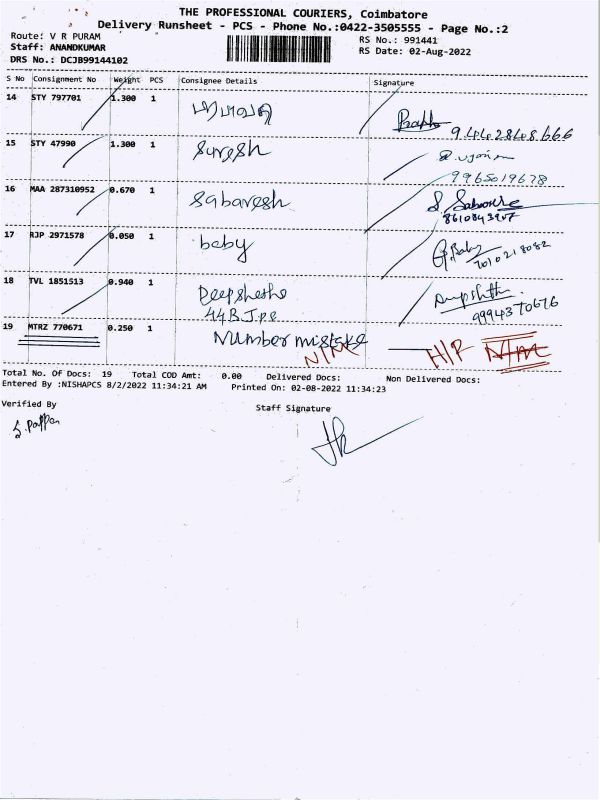 THE PROFESSIONAL COURIERS, Coimbatore
Delivery Runsheet - PCS - Phone No.:0422-3505555 - Page No.:2
Route: V R PURAM RS No.: 991441
Staff: ANANDKUMAR RS Date: 02-Aug-2022
DRS No.: DCJB99144102
S No Consignment No Weight PCS Consignee Details Signature
14 STY 797701 1.300 1
15 STY 47990 1.300 1 Suresh
9965019678
16 MAA 287310952 0.670 1 Sabaresh S
8610843207
17 RJP 2971578 0.050 1 baby G. Baby
7010218082
18 TVL 1851513 0.940 1
44 B.J.p.e 9994370676
19 MTRZ 770671 0.250 1 Number mistake
N/M H/P N/M
Total No. Of Docs: 19 Total COD Amt: 0.00 Delivered Docs: Non Delivered Docs:
Entered By :NISHAPCS 8/2/2022 11:34:21 AM Printed On: 02-08-2022 11:34:23
Verified By Staff Signature